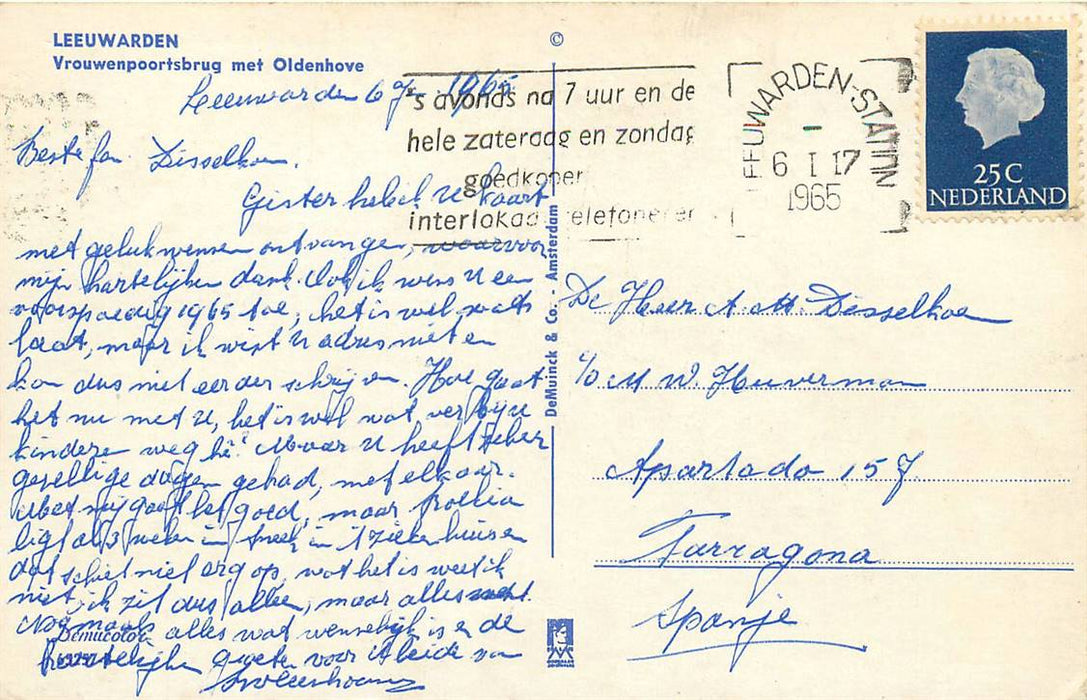 LEEUWARDEN
Vrouwenpoortsbrug met Oldenhove
©
Leeuwarden 6/ 1965
's avonds na 7 uur en de
hele zaterdag en zondag
goedkoper
interlokaal telefoneren
LEEUWARDEN-STATION
6 I 17
1965
25 C
NEDERLAND
Beste fam. Disselhoen.
Gister heb ik U kaart
met gelukwensen ontvangen, waarvoor
mijn hartelijken dank. Ook ik wens U een
voorspoedig 1965 toe, het is wel wat
laat, maar ik wist U adres niet en
kon dus niet eerder schrijven. Hoe gaat
het nu met U, het is wel wat ver bij U
kinderen weg hè? Maar U heeft zeker
gezellige dagen gehad, met elkaar.
Met mij gaat het goed, maar
ligt al 3 weken in Sneek in 't ziekenhuis en
dat schiet niet erg op, wat het is weet ik
niet, ik zit dus alleen, maar alles went.
Nogmaals alles wat wenselijk is en de
hartelijke groeten voor U beide van
Demucolor
DeMuinck & Co. - Amsterdam
De Heer A M. Disselhoen
c/o M W. Huverman
Apartado 157
Tarragona
Spanje